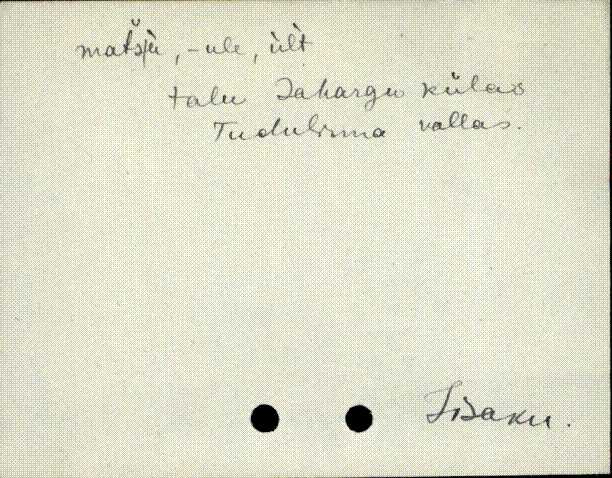 matšju, -ule, ult
talu Jahargu külas
Tudulinna vallas.
Iisaku.